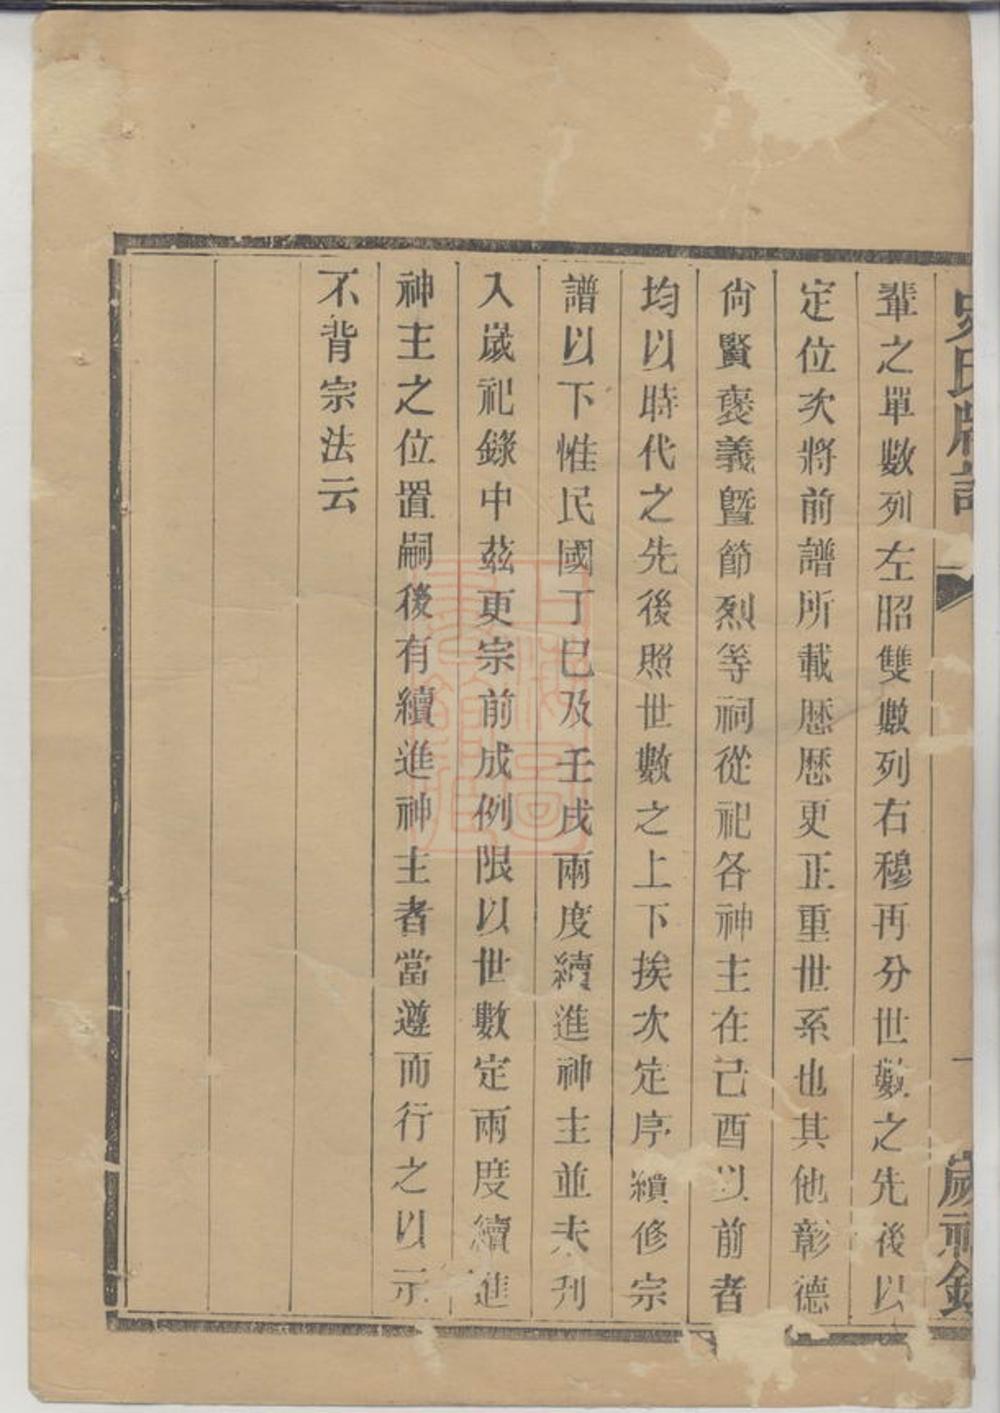 氏
歲祀錄
輩之單數列左昭雙數列右穆再分世數之先後以
定位次將前譜所載歷歷更正重世系也其他彰德
尙賢褒義曁節烈等祠從祀各神主在己酉以前者
均以時代之先後照世數之上下挨次定序續修宗
譜以下惟民國丁巳及壬戌兩度續進神主並未刋
入歲祀錄中茲更宗前成例限以世數定兩度續進
神主之位置嗣後有續進神主者當遵而行之以示
不背宗法云